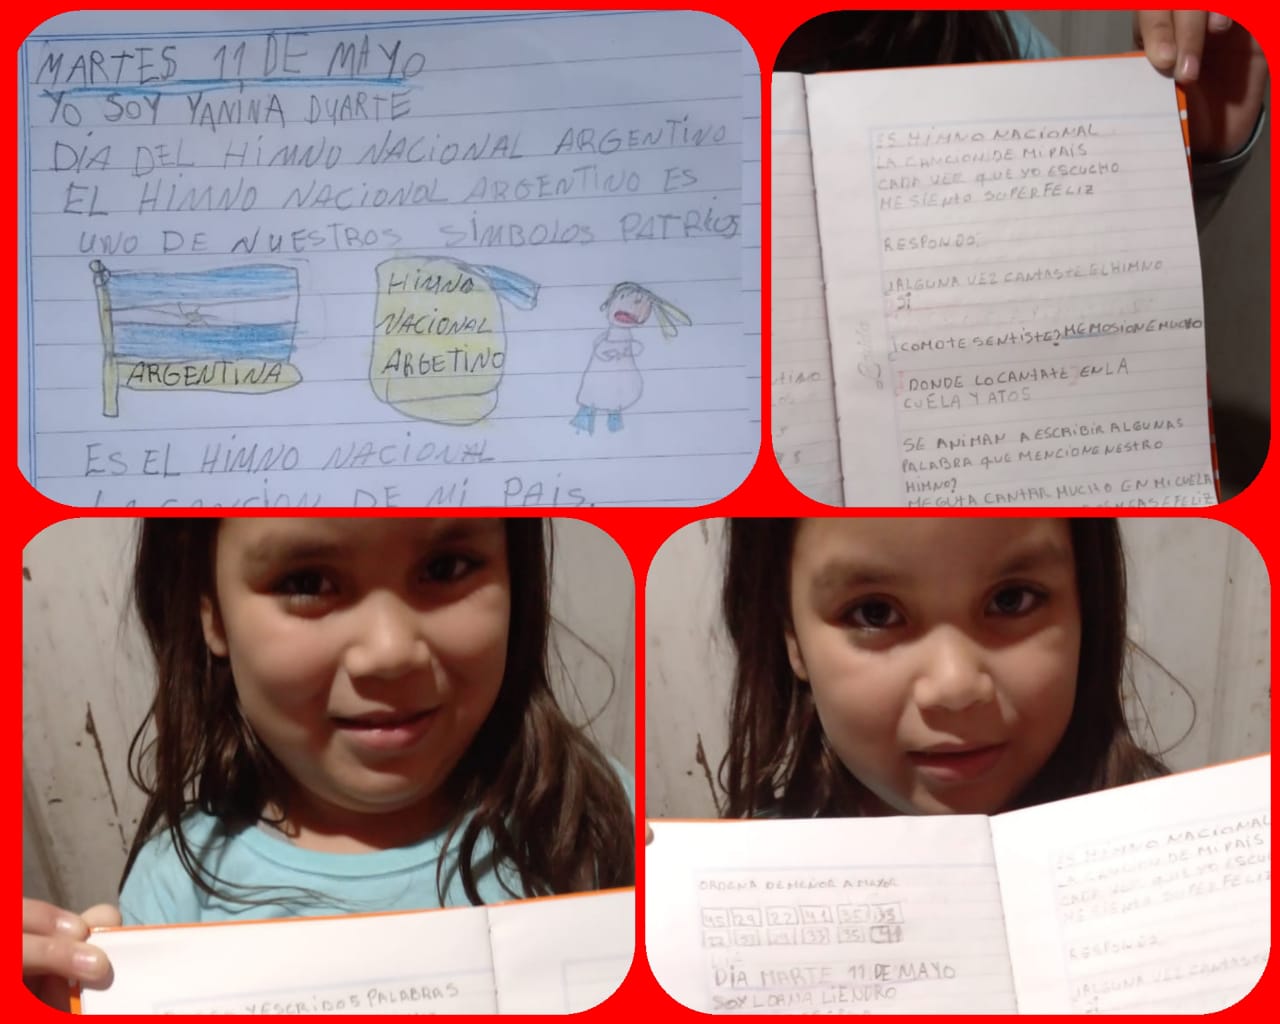 MARTES 11 DE MAYO
YO SOY YANINA DUARTE
DÍA DEL HIMNO NACIONAL ARGENTINO
EL HIMNO NACIONAL ARGENTINO ES
UNO DE NUESTROS SÍMBOLOS PATRIOS
ARGENTINA
HIMNO
NACIONAL
ARGETINO
ES EL HIMNO NACIONAL
LA CANCION DE MI PAIS.
ES HIMNO NACIONAL
LA CANCION DE MI PAÍS
CADA VEZ QUE YO ESCUCHO
ME SIENTO SUPER FELIZ
RESPONDO:
¿ALGUNA VEZ CANTASTE EL HIMNO
SI
¿COMO TE SENTISTE? ME MOSIONE MUCHO
DONDE LO CANTATE EN LA
CUELA Y ATOS
SE ANIMAN A ESCRIBIR ALGUNAS
PALABRA QUE MENCIONE NESTRO
HIMNO?
ME GUTA CANTAR MUCHO EN MI CUELA
FELIZ
Y ESCRIDOS PALABRAS
ORDENA DE MENOR A MAYOR
45 29 22 41 35 33
22 29 33 35 41
DÍA MARTE 11 DE MAYO
SOY LOANA LIENDRO
ES HIMNO NACIONAL
LA CANCION DE MI PAIS
CADA VEZ QUE YO ESCU
ME SIENTO SUPER FELIZ
¿ALGUNA VEZ CANTASTE
SI